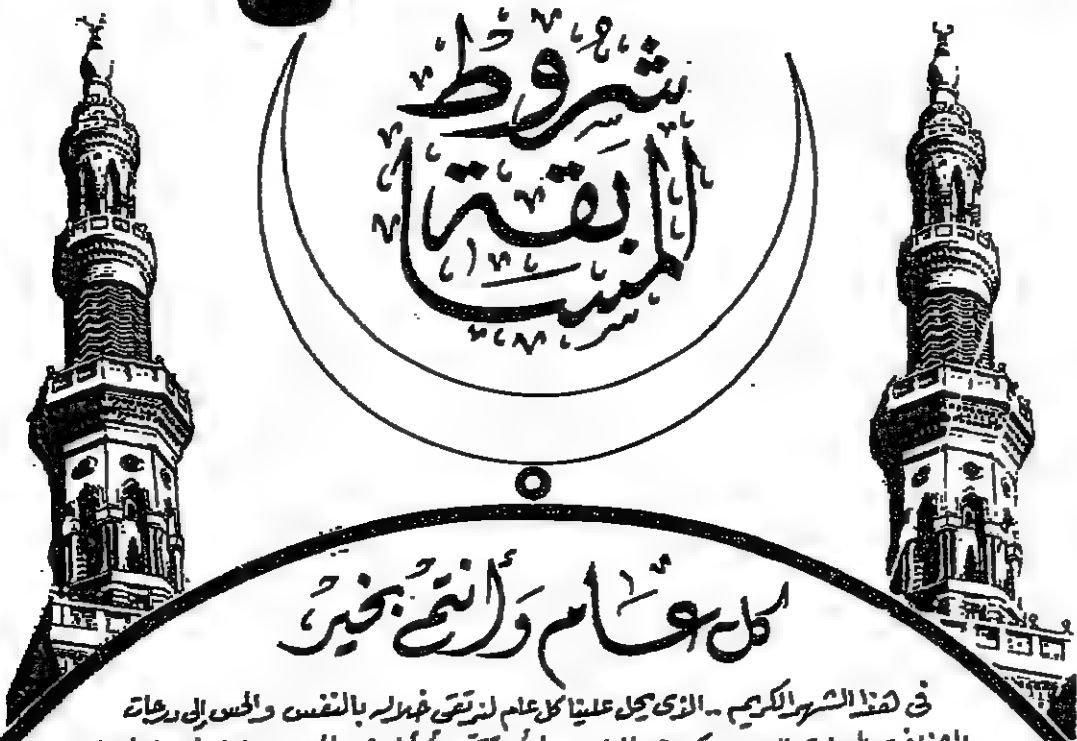 شروط
المسابقة
كل عام وأنتم بخير
فى هذا الشهر الكريم .. الذى يحل علينا كل عام لنرتقى خلاله بالنفس والحس إلى درجات